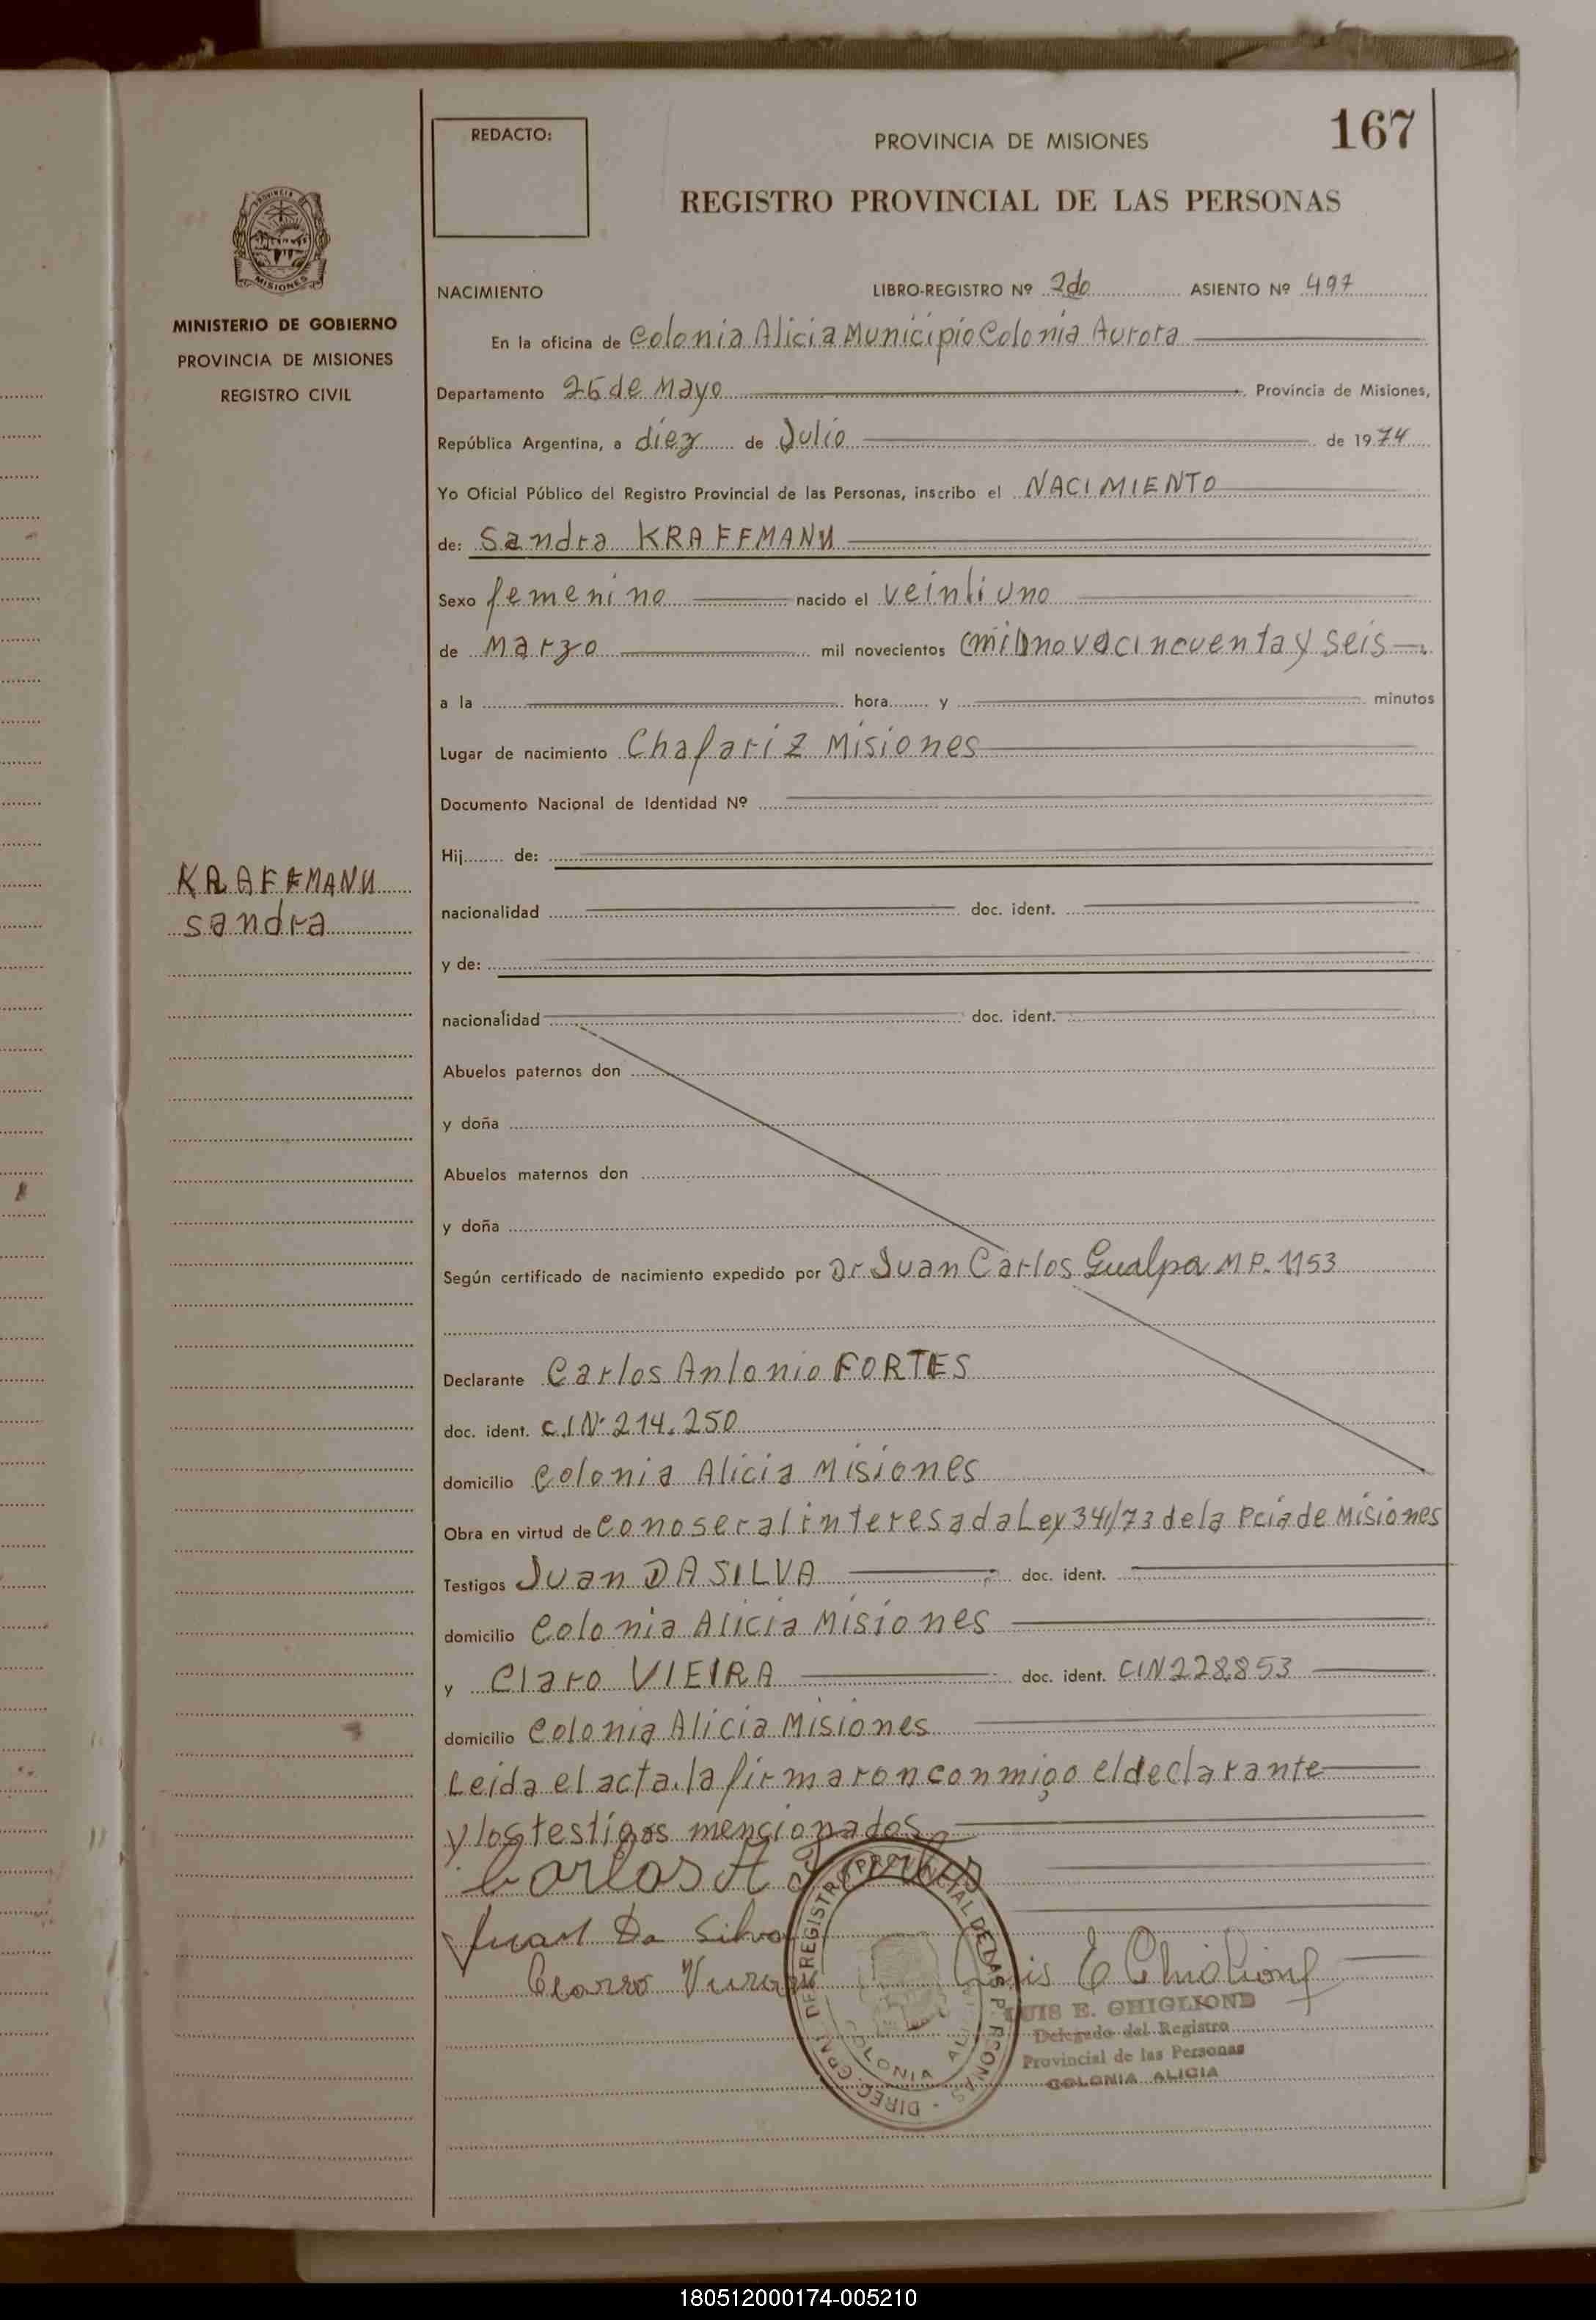 167
REDACTO:
PROVINCIA DE MISIONES
REGISTRO PROVINCIAL DE LAS PERSONAS
MISIONES
MINISTERIO DE GOBIERNO
PROVINCIA DE MISIONES
REGISTRO CIVIL
KRAFFMANN
Sandra
NACIMIENTO LIBRO-REGISTRO Nº 2do ASIENTO Nº 497
En la oficina de Colonia Alicia Municipio Colonia Aurora
Departamento 25 de Mayo Provincia de Misiones,
República Argentina, a diez de Julio de 1974
Yo Oficial Público del Registro Provincial de las Personas, inscribo el NACIMIENTO
de: Sandra KRAFFMANN
Sexo femenino nacido el veintiuno
de Marzo mil novecientos (mil) nove cincuenta y seis
a la hora y minutos
Lugar de nacimiento Chafariz Misiones
Documento Nacional de Identidad Nº
Hij de:
nacionalidad doc. ident.
y de:
nacionalidad doc. ident.
Abuelos paternos don
y doña
Abuelos maternos don
y doña
Según certificado de nacimiento expedido por Dr Juan Carlos Gualpa M P. 1153
Declarante Carlos Antonio FORTES
doc. ident. C.I Nº 214.250
domicilio Colonia Alicia Misiones
Obra en virtud de Conoser al interesada Ley 341/73 de la Pcia de Misiones
Testigos Juan DA SILVA doc. ident.
domicilio Colonia Alicia Misiones
y Claro VIEIRA doc. ident. CIN 228.853
domicilio Colonia Alicia Misiones
Leida el acta. la firmaron conmigo el declarante
y los testigos mencionados
Carlos A Fortes
Juan Da Silva
Claro
Luis E Ghiglione
LUIS E. GHIGLIONE
Delegado del Registro
Provincial de las Personas
COLONIA ALICIA
DIREC. GRAL DEL REGISTRO PROVINCIAL DE LAS PERSONAS
COLONIA ALICIA
180512000174-005210